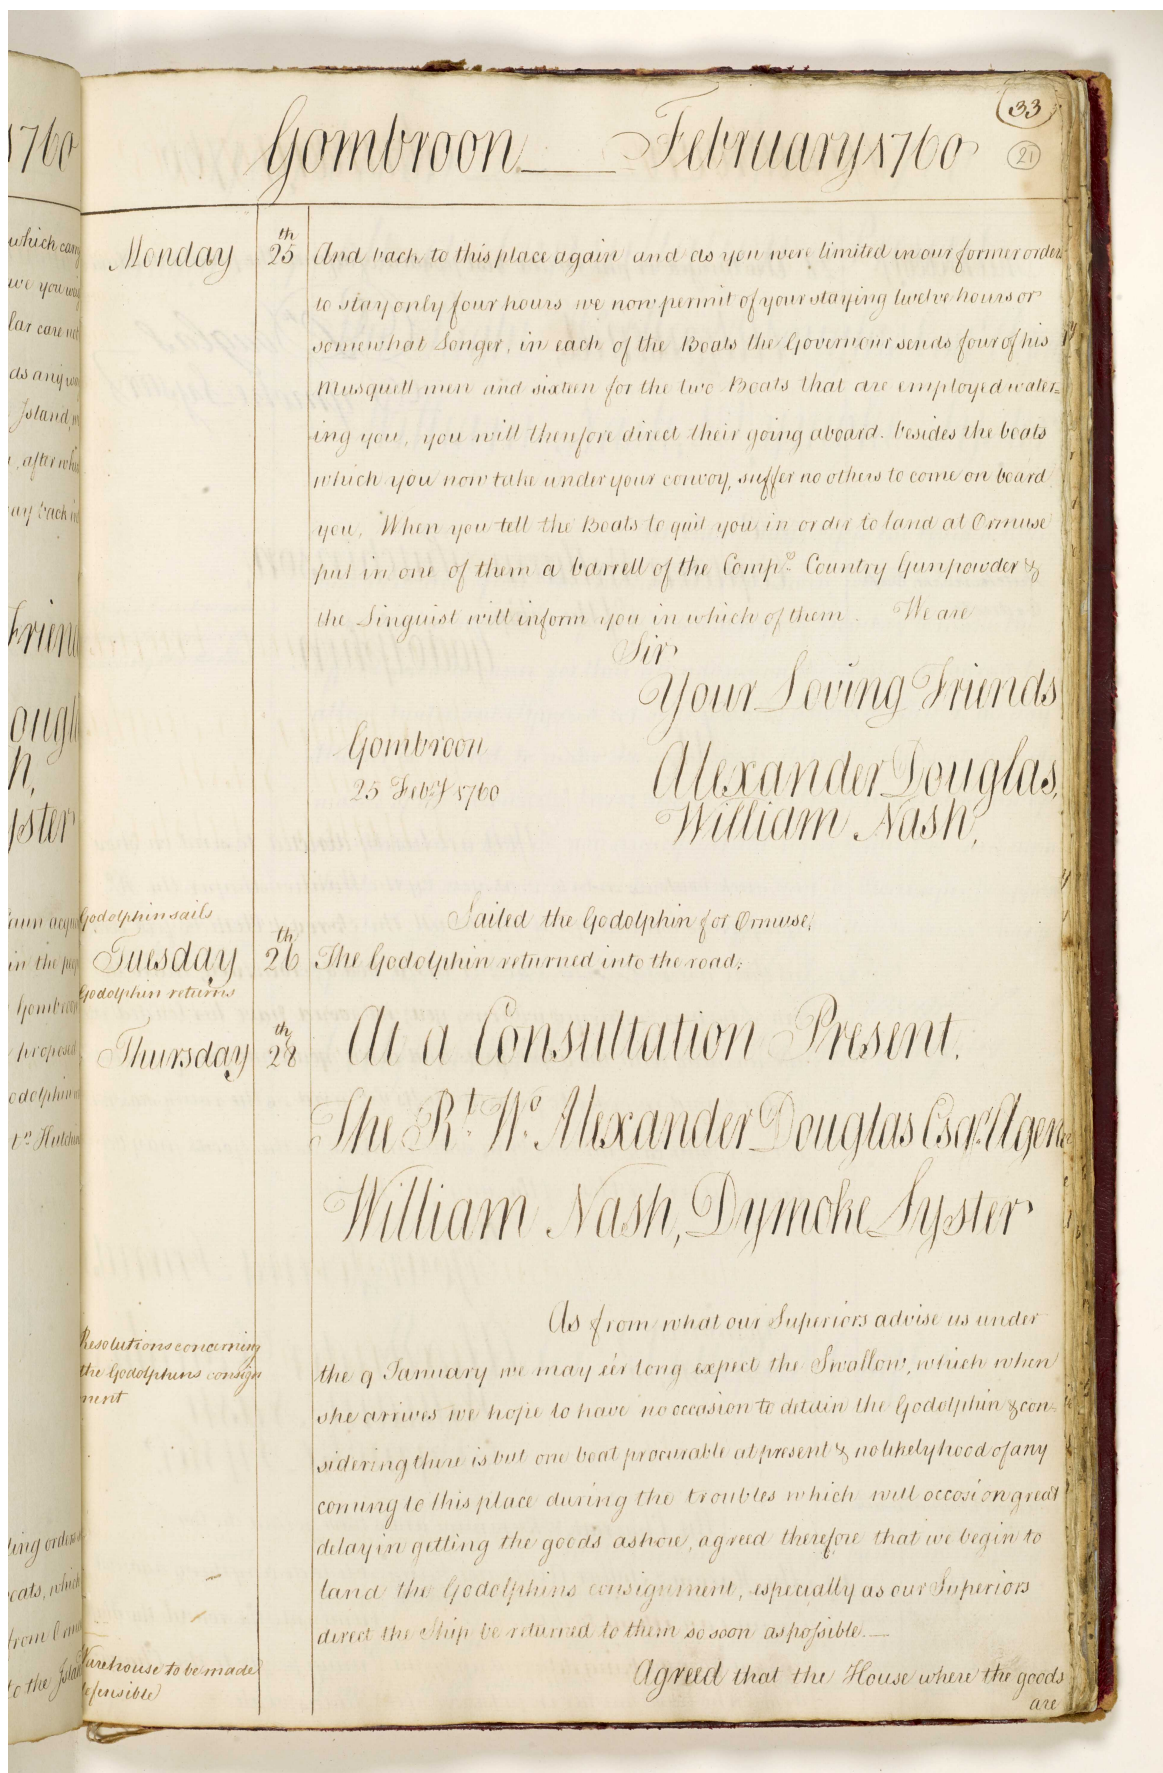 33
Gombroon February 1760
21
Monday 25th And back to this place again and as you were limited in our former orders
to stay only four hours we now permit of your staying twelve hours or
somewhat Longer, in each of the Boats the Governour sends four of his
Musquett men and sixteen for the two Boats that are employed water=
ing you, you will therefore direct their going aboard. besides the boats
which you now take under your convoy, suffer no others to come on board
you, When you tell the Boats to quit you in order to land at Ormuse
put in one of them a barrell of the Compa. Country Gunpowder &
the Linguist will inform you in which of them. We are
Sir
Your Loving Friends
Gombroon
25 Feby 1760
Alexander Douglas,
William Nash,
Godolphin sails
Sailed the Godolphin for Ormuse,
Tuesday 26th The Godolphin returned into the road;
Godolphin returns
Thursday 28th At a Consultation Present.
The Rt. Wo. Alexander Douglas Esqr. Agent
William Nash, Dymoke Lyster
As from what our Superiors advise us under
Resolutions concerning
the Godolphins consign
ment
the 9 January we may e'er long expect the Swallow, which when
she arrives we hope to have no occasion to detain the Godolphin & con-
sidering there is but one boat procurable at present & no likelyhood of any
coming to this place during the troubles which will occasion great
delay in getting the goods ashore, agreed therefore that we begin to
land the Godolphins consignment, especially as our Superiors
direct the Ship be returned to them so soon as possible.—
Warehouse to be made
defensible
Agreed that the House where the goods
are